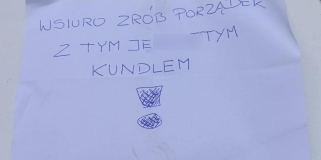 WSIURO ZRÓB PORZĄDEK
Z TYM JE TYM
KUNDLEM
!